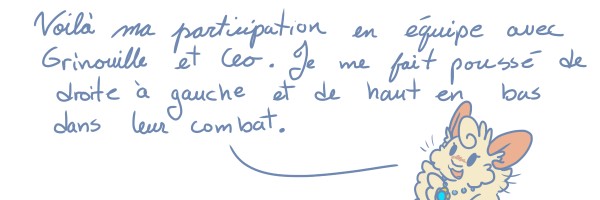 Voilà ma participation en équipe avec
Grinouille et Ceo. Je me fait poussé de
droite à gauche et de haut en bas
dans leur combat.